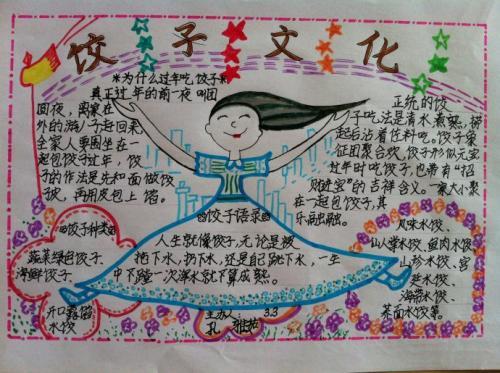 饺子文化
*为什么过年吃饺子来
真正过年的前一夜叫团
圆夜,离家在
外的游人子赶回来
全家人要围坐在一
起包饺子过年,饺
子的作法是先和面做饺
子皮,再用皮包上馅。
正统的饺
子吃法是清水煮熟,捞
起后沾着佐料吃。饺子象
征团聚合欢,饺子形似元宝
过年时吃饺子,也带有"招
财进宝"的吉祥含义。一家大小聚
在一起包饺子,其
乐融融。
饺子种类
蔬菜绿色饺子、
海鲜饺子
开口露馅
水饺
饺子语录
人生就像饺子,无论是被
拖下水,扔下水,还是自己跳下水,一生
中不蹚一次浑水就不算成熟。
风味水饺、
山小菜水饺、鱼肉水饺
山珍水饺、宫
廷水饺、
海带水饺、
菜面水饺等。
主办人: 3.3
孔